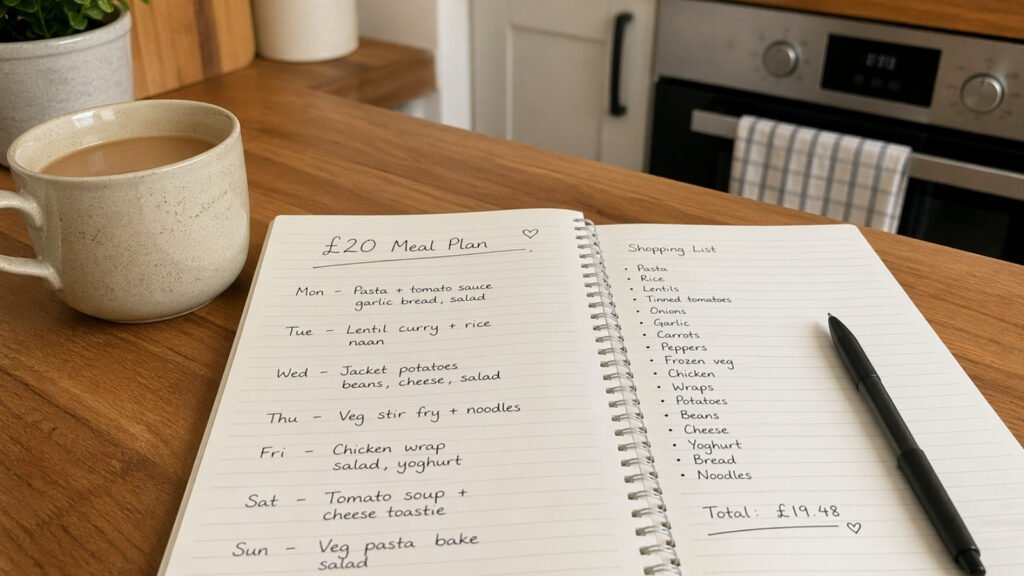 £20 Meal Plan
Mon – Pasta + tomato sauce
garlic bread, salad
Tue – Lentil curry + rice
naan
Wed – Jacket potatoes
beans, cheese, salad
Thu – Veg stir fry + noodles
Fri – Chicken wrap
salad, yoghurt
Sat – Tomato soup +
cheese toastie
Sun – Veg pasta bake
salad
Shopping List
• Pasta
• Rice
• Lentils
• Tinned tomatoes
• Onions
• Garlic
• Carrots
• Peppers
• Frozen veg
• Chicken
• Wraps
• Potatoes
• Beans
• Cheese
• Yoghurt
• Bread
• Noodles
Total: £19.48